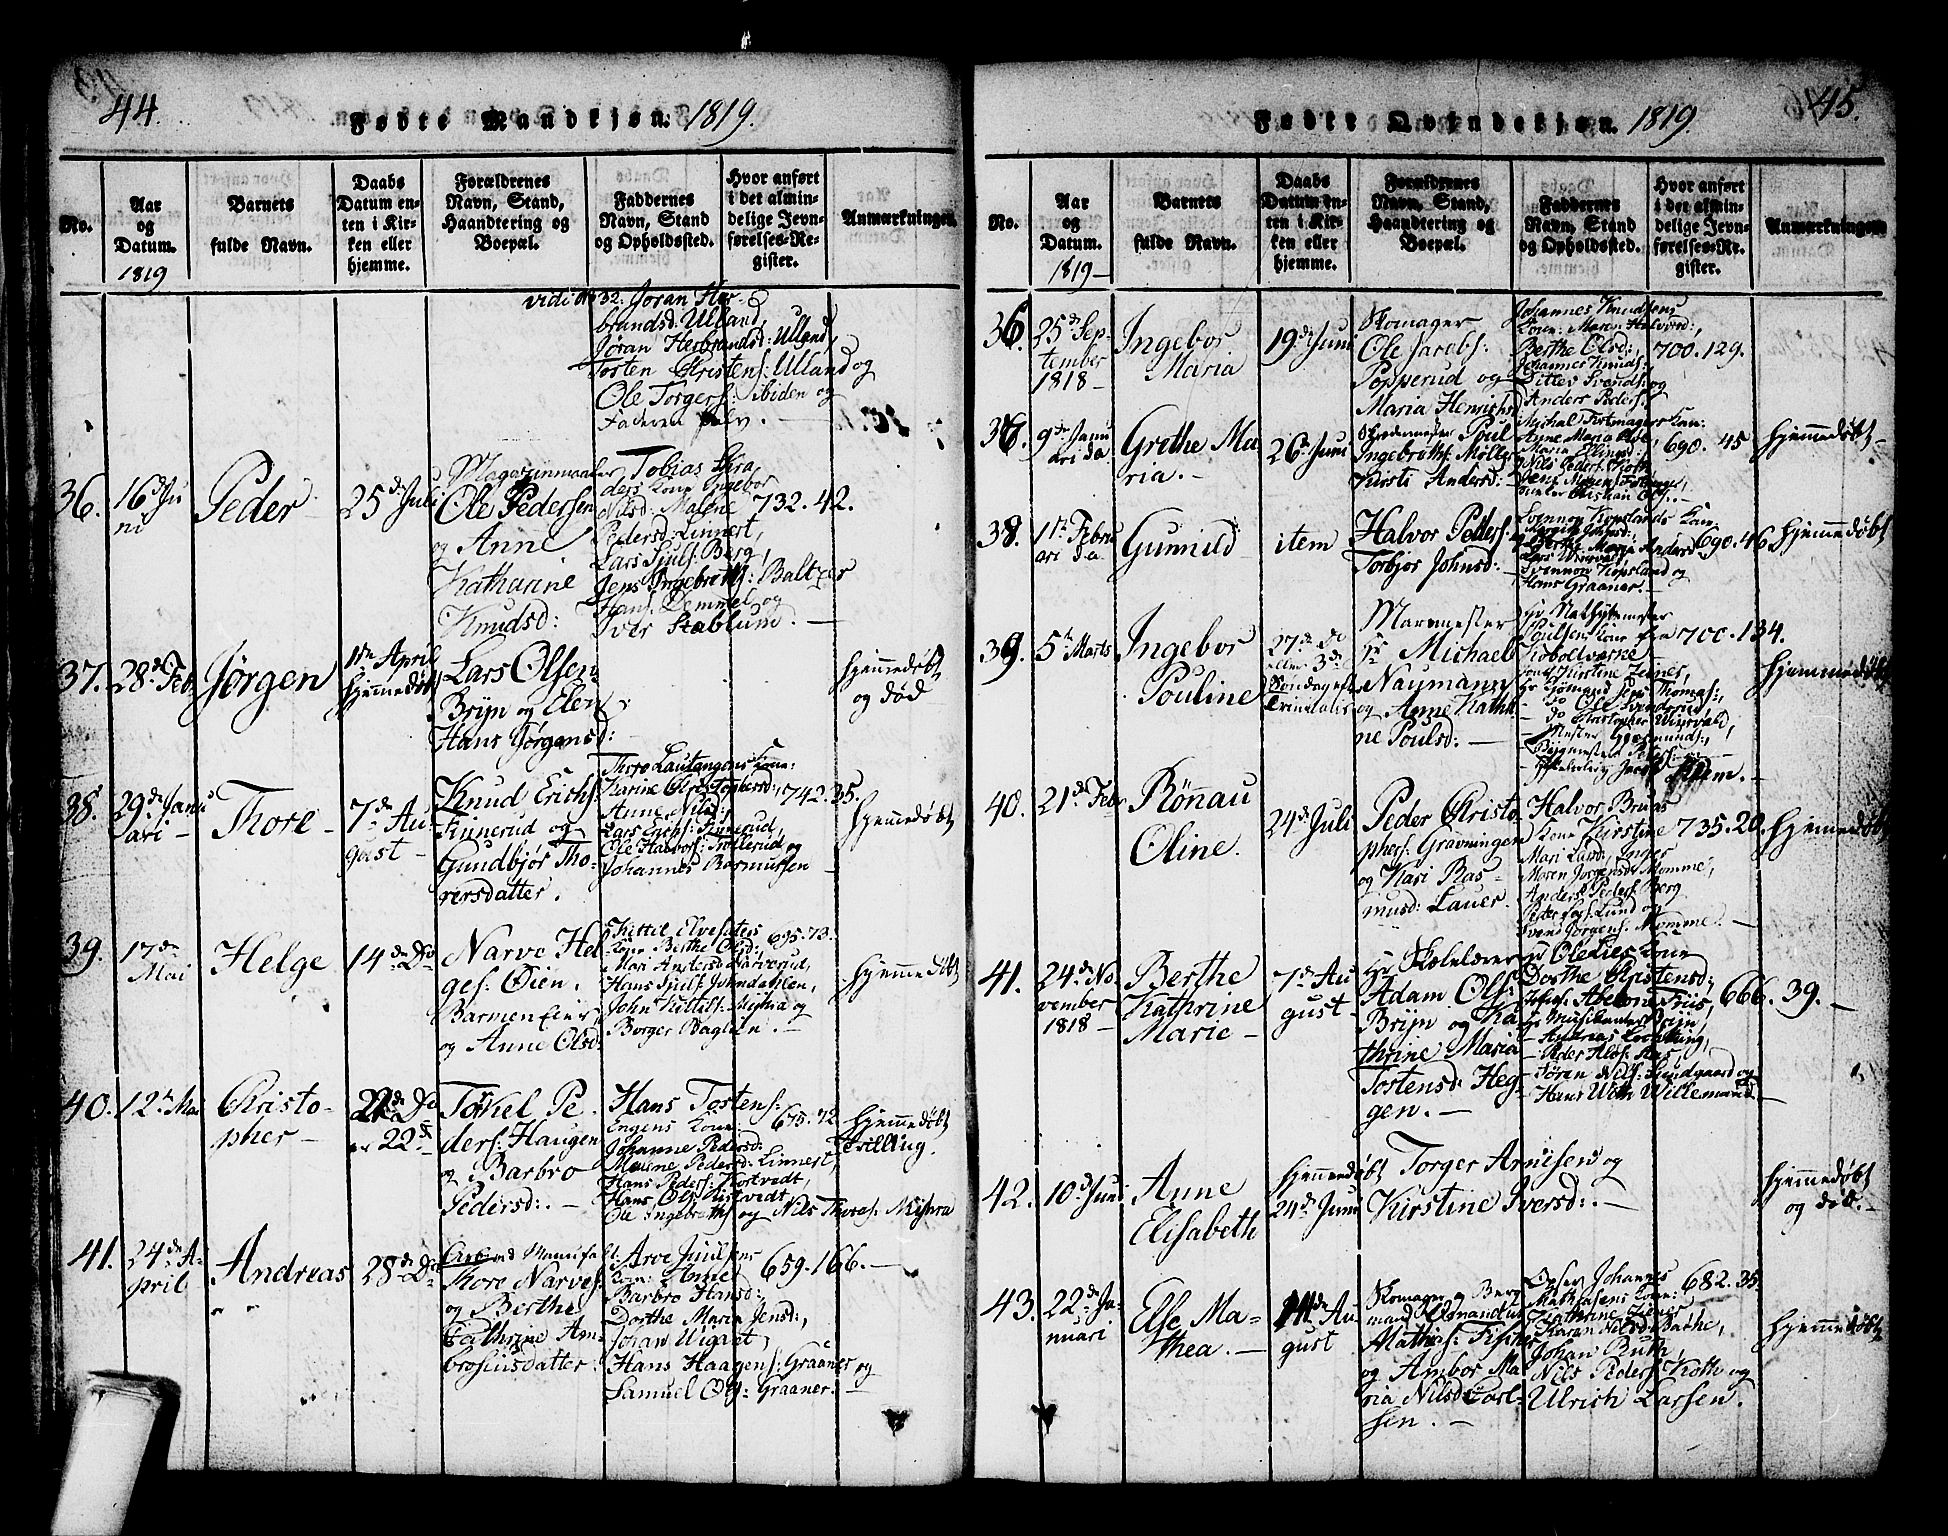 44.
Fødte Mandkjøn. 1819.
No.
Aar og Datum.
1819
Barnets fulde Navn.
Daabs Datum enten i Kirken eller hjemme.
Forældrenes Navn, Stand, Haandtering og Boepæl.
Faddernes Navn, Stand og Opholdssted.
Hvor anført i det almindelige Jevnførelses-Register.
Anmærkninger.
vidi No 32. Joran Her-
brandsd: Ulland,
Jøran Herbrandsd: Ulland,
Tosten Christens: Ulland og
Ole Torgers: ibiden og
Faderen selv. —
36.
16 d Ju
ni
Peder
25 de Juli
Magazinmaaler
Ole Pedersen
og Anne
Katharine
Knudsd:
Tobias Stra
ders Kone Ingebor
Nilsd: Malene
Pedersd: Linnert,
Lars Juls: Berg,
Jens Ingebreths: Baltzer
Hans: Demmel og
Iver Stablum. —
732. 42.
37.
28 de Feb
Jørgen
1ste April
hjemmedøbt
Lars Olsen
Bryn og Elen
Hans Jørgensd:
hjemmedøbt
og død
38.
29 de Janu
ari —
Thore —
7 de Au
gust —
Knud Erichs:
Finnerud og
Gundbjør Tho-
rersdatter.
Thore Lautangens Kone:
Karine Christophersd:,
Anne Nilsd:,
Lars Erichs: Finnerud,
Ole Halvors: Trollerud og
Johannes Rasmussen
742. 35.
hjemmedøbt
39.
17 de
Mai
Helge
14 de Do
Narve Hel
ges: Øien,
Barmen Eier,
og Anne Olsd:
Kittil Elvesæters
Kone Berthe Olsd:
Mari Andersd: Narverud,
Hans Juls: Johndahlen,
John Kittils: Mythra og
Borger Daglien. —
695. 73.
hjemmedøbt
40.
12 te Mai
Christo-
pher —
Do
22 de
Torkel Pe
ders: Haugen
og Barbro
Pedersd: —
Hans Tostens:
Engens Kone:
Johanne Pedersd:
Malene Pedersd: Linnert,
Hans Peders: Kortvedt,
Hans Ols: Kistvedt,
Ole Ingebreths: og Nils Thoras: Mistra
675. 72.
hjemmedøbt
Tvilling.
41.
24 de A-
pril
Andreas
28 de Do
Thore Narves:
og Berthe
Cathrine Am-
brosiusdatter.
Arve Juulsens
Kone: Anne,
Barbro Hansd:,
Dorthe Maria Jensd:,
Johan Wigant,
Hans Haagens: Graaner og
Samuel Ols: Graaner. —
659. 166. —
45.
Fødte Qvindekjøn. 1819.
No.
Aar og Datum.
1819 —
Barnets fulde Navn.
Daabs Datum enten i Kirken eller hjemme.
Forældrenes Navn, Stand, Haandtering og Boepæl.
Faddernes Navn, Stand og Opholdssted.
Hvor anført i det almindelige Jevnførelses-Register.
Anmærkninger.
36.
25 de Sep-
tember
1818 —
Ingebor
Maria
19 de Juni
Skomager
Ole Jacobs:
Popperud og
Maria Henrichsd
Johannes Knudsens
Kone: Maren Halvord:,
Berthe Olsd:,
Johannes Knuds:
Ditlev Svends: og
Anders Peders:
700. 129.
37.
9 de Janu
ari da
Grethe Ma
ria. —
26 de Juni
Poul
Ingebreths: Møller
Kirsti Andersd: —
Anne Maria
Nils Peders: Koth,
690. 45
hjemmedøbt —
38.
1ste Febru
ari da
Gunnild
item
Halvor Peders:
Torbjør Johnsd: —
Svennon Kopslands Kone
Berthe Maria Andersd
Svennon Kopsland og
Hans Graaner. —
690. 46
hjemmedøbt
39.
5 te Marts
Ingebor
Pouline
27 de Do
eller 3 de
Søndag eft.
Trinitatis
Marmester
Hr Michael
Naumann
og Anne Kathri
ne Poulsd: —
Poulsens Kone fra
Koboltværket
700. 134.
hjemmedøbt
40.
21 de Febr
Rønnau
Oline.
24 de Juli
Peder Christo-
phers: Gravningen
og Kari Ras-
musd: Lauer.
Halvor Bruas
Kone Kirstine
Mari Larsd:, Inger
Maren Jørgensd: Momme,
Anders Peders: Berg
Peder Jons: Lund og
Svend Jørgens: Momme. —
735. 20.
hjemmedøbt
41.
24 de No-
vember
1818 —
Berthe
Kathrine
Marie —
7 de Au
gust —
Hr Skolelærer
Adam Ols:
Bryn og Ka
thrine Maria
Tostensd: Heg-
gen. —
Hr Ole Lies Kone
Dorthe Christensd:,
Jomfr: Abelone Friis,
Hr Musikanter Bryn
- Andreas
- Peder Alofs: Aas,
- Søren Nils: Sundgaard og
- Hans With Willemand. —
666. 39. —
42.
10 d Juni
Anne
Elisabeth
hjemmedøbt
24 de Juni
Torger Arnisen og
Kirstine Iversd: —
hjemmedøbt
og død. —
43.
22 de Ja-
nuari
Else Ma-
thea. —
14 de Au
gust
Skomager og Berg
mand
Mathis: Fischer
og Ambor Ma
ria Nilsd: Carl-
sen. —
Opsyn Johannes
Mathisens Kone:
Kathrine
Karen Nilsd: Bathe,
Johan Buth,
Nils Peders: Koth og
Ulrich Larsen.
682. 35.
hjemmedøbt